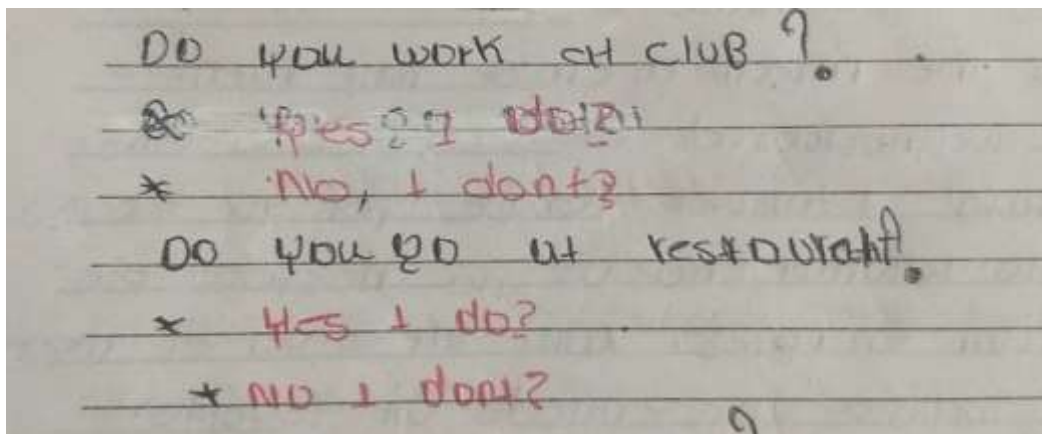 DO you work at cluB?
* Yes, I do?
* No, I dont?
DO you go at restaurant?
* Yes I do?
* NO I dont?